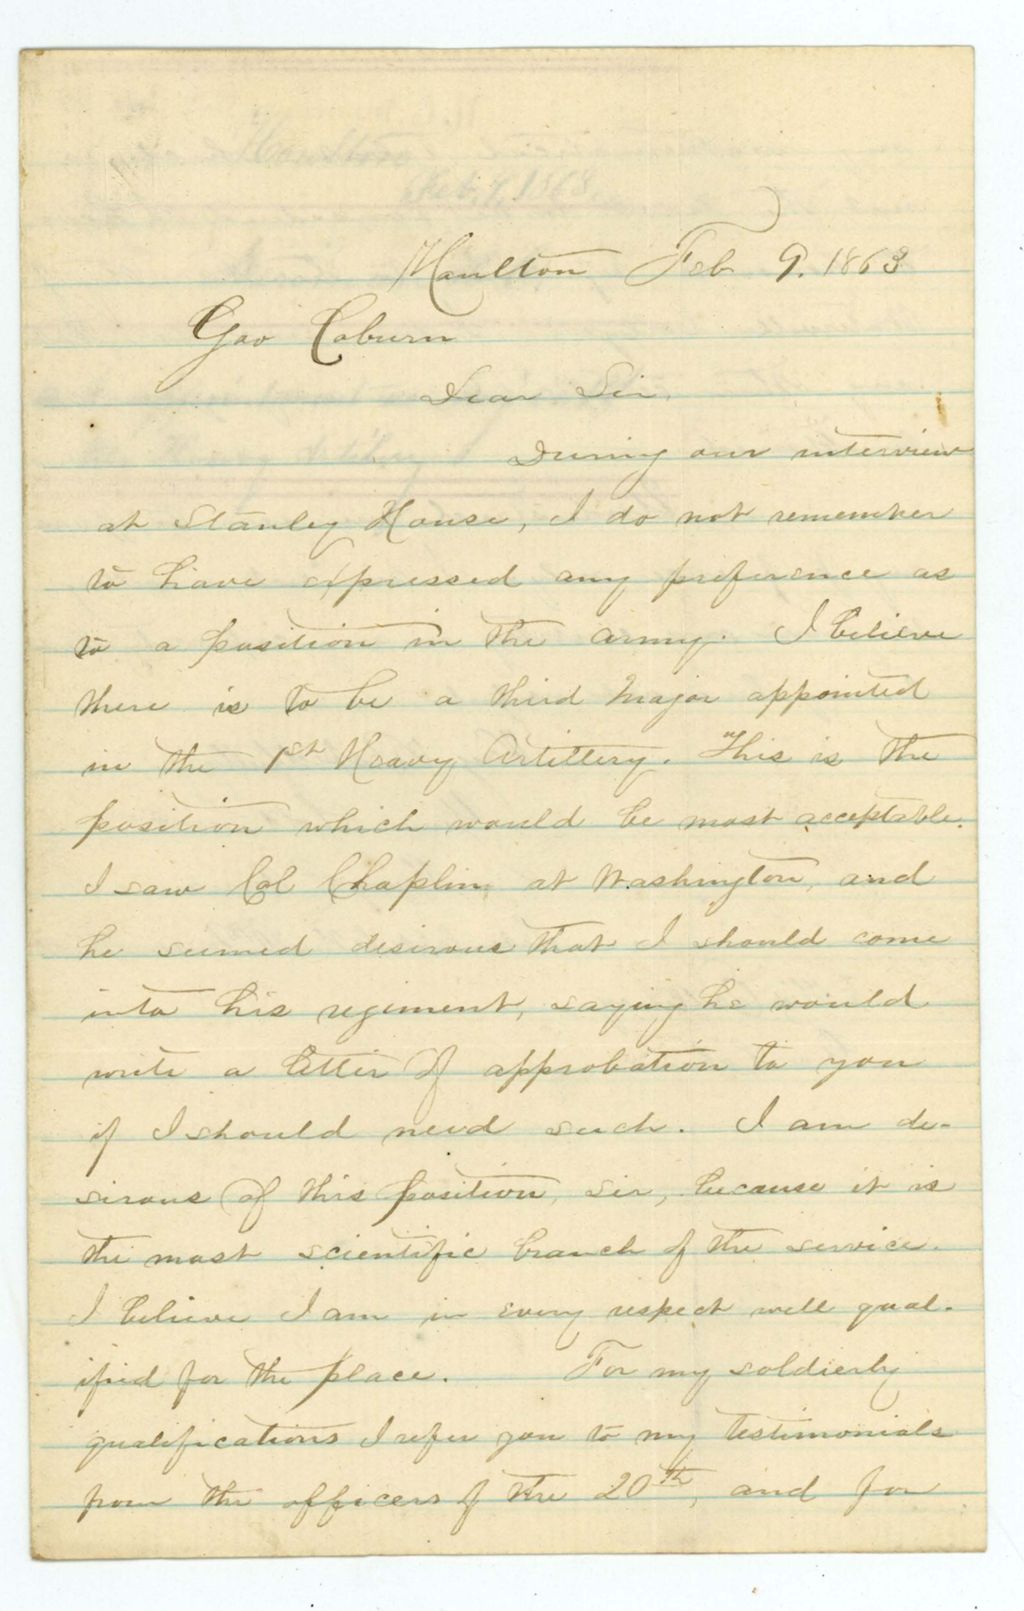 Houlton Feb 9. 1863
Gov Coburn
Dear Sir,
During our interview
at Stanley House, I do not remember
to have expressed any preference as
to a position in the army. I believe
there is to be a third Major appointed
in the 1st Heavy Artillery. This is the
position which would be most acceptable.
I saw Col Chaplin at Washington, and
he seemed desirous that I should come
into his regiment, saying he would
write a letter of approbation to you
if I should need such. I am de-
sirous of this position, sir, because it is
the most scientific branch of the service.
I believe I am in every respect well qual-
ified for the place. For my soldierly
qualifications I refer you to my testimonials
from the officers of the 20th, and for